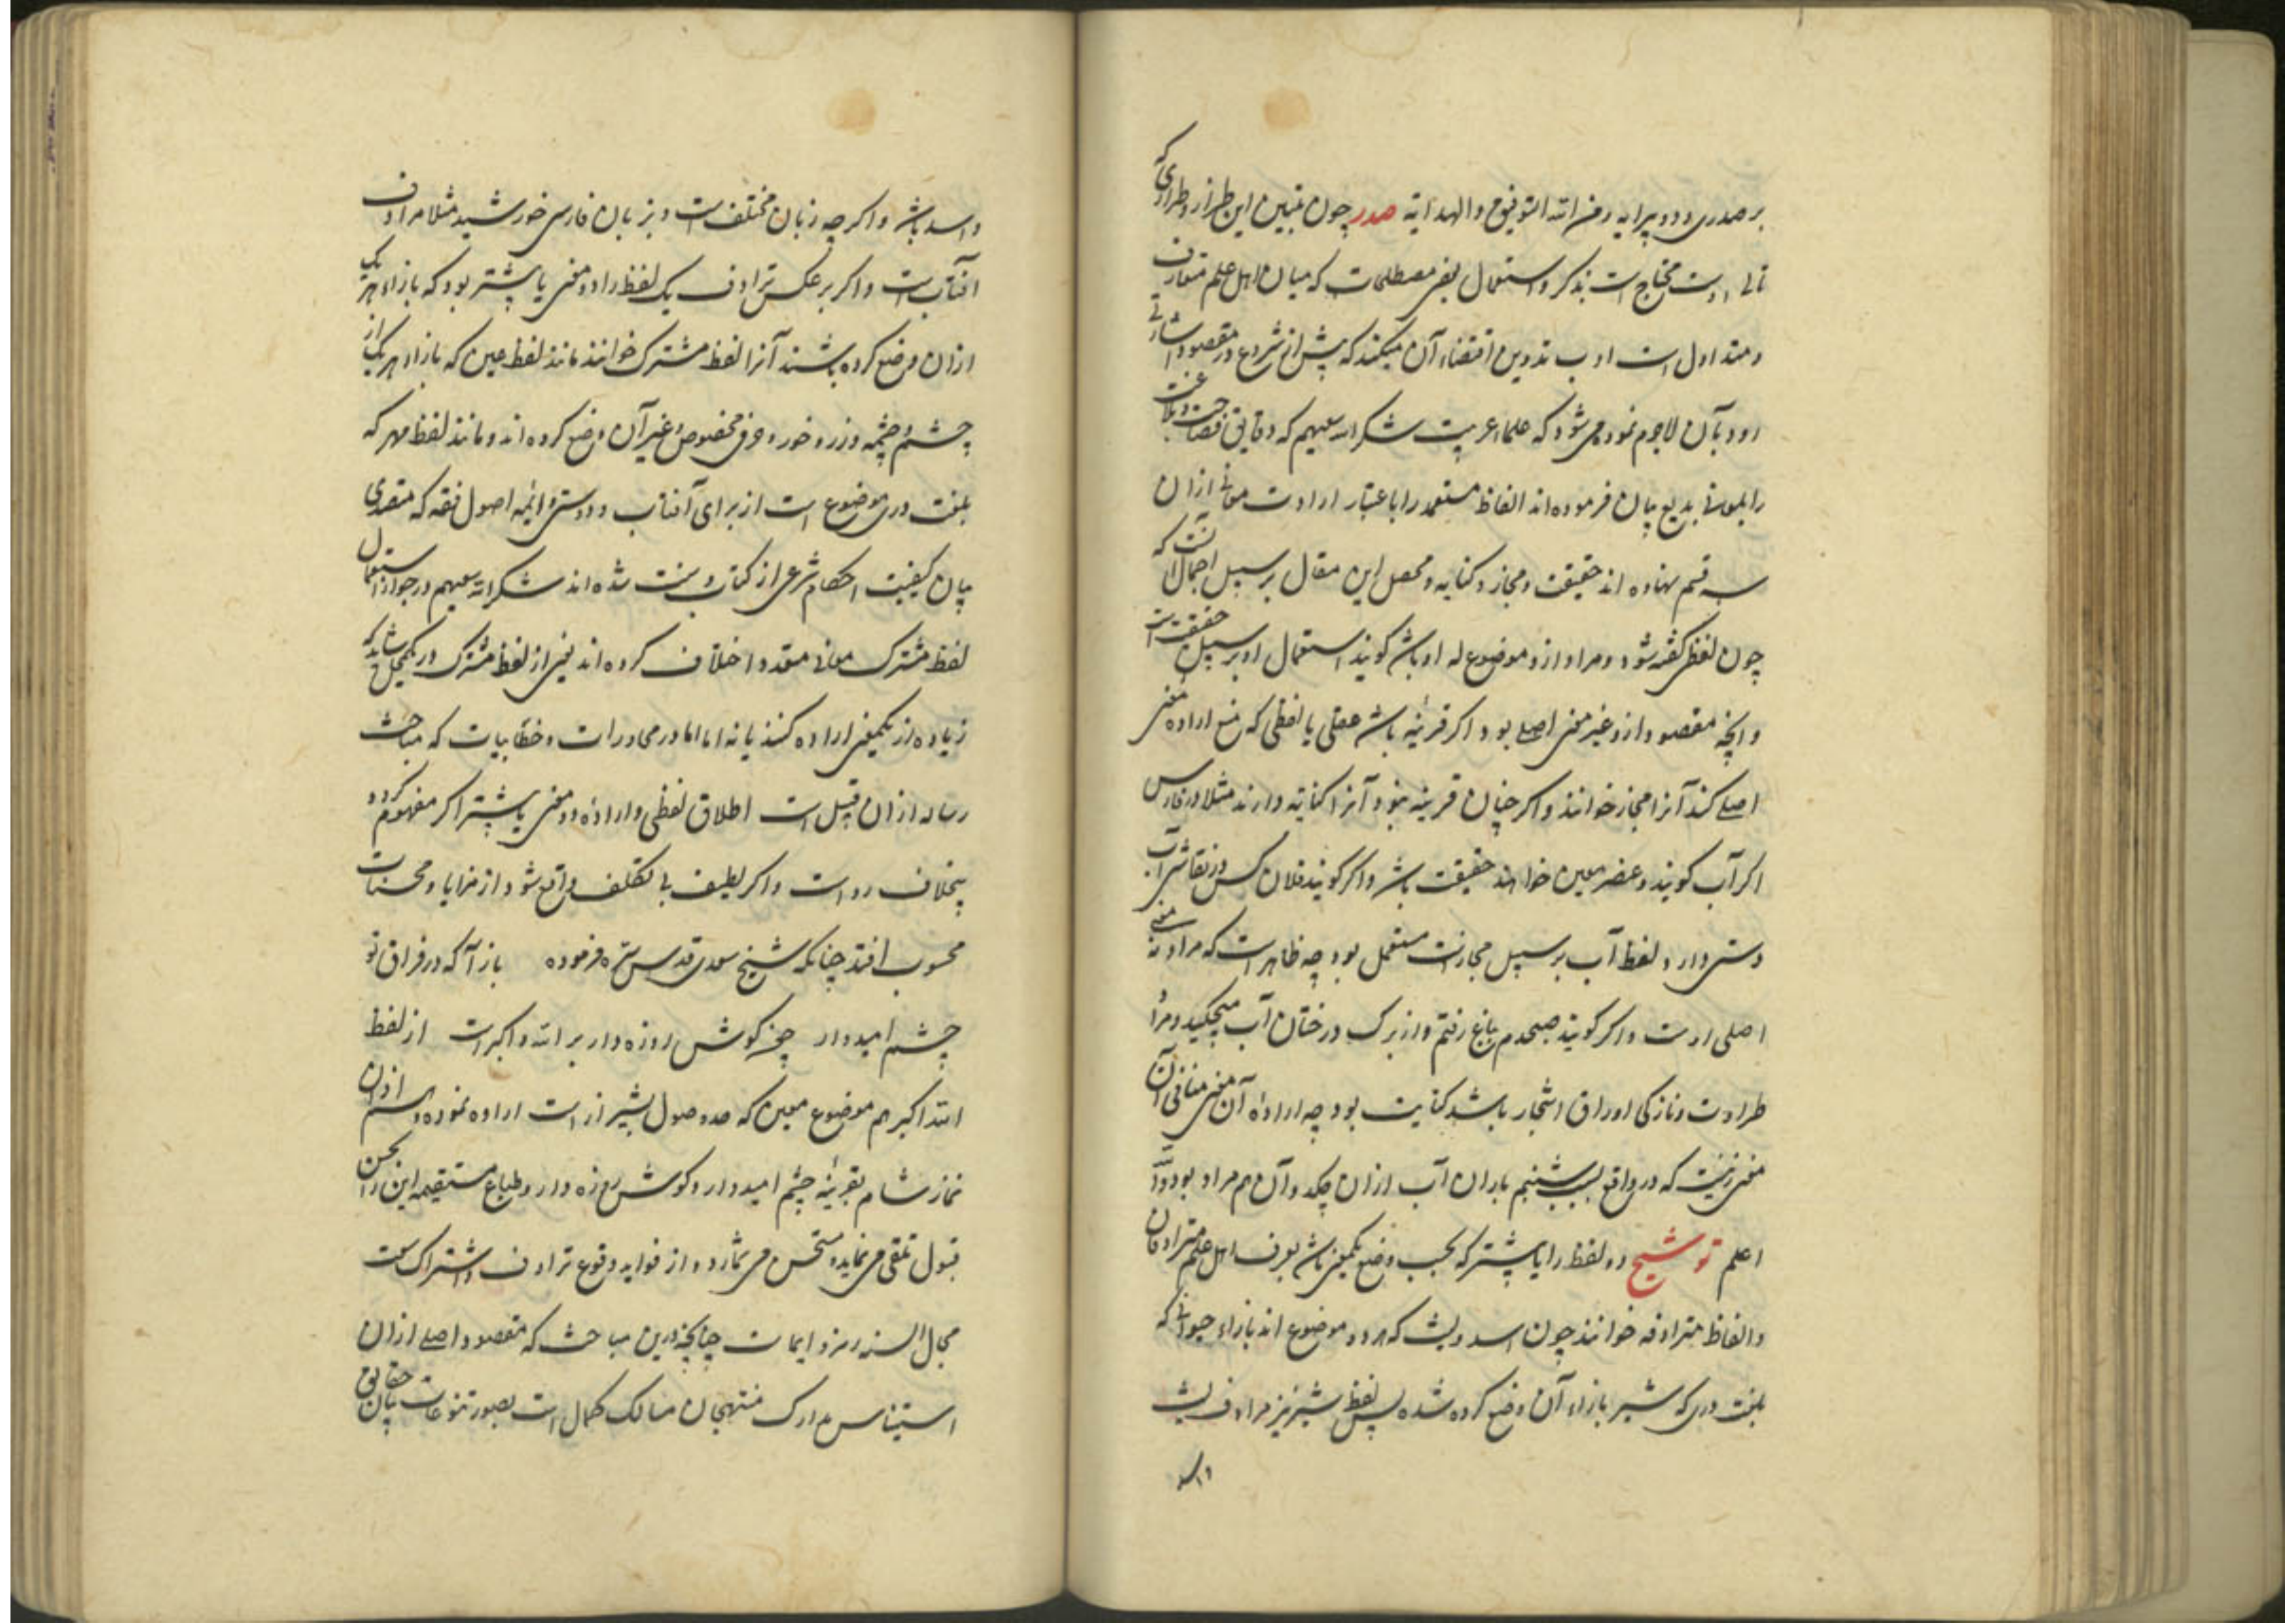 بر صدری و دو پیرایه و من الله التوفیق و الهدایة صدر چون تبیین این طراز و طرازی که
تالی اوست محتاج است بذکر و استعمال بعضی مصطلحات که میان اهل علم متعارف
و متداول است ادب تدوین اقتضاء آن میکند که پیش از شروع در مقصود اشارتی
رود بآن لاجرم نموده می شود که علماء عربیت شکر الله سعیهم که دقایق فصاحت و بلاغت
را بمعونی بدیع بیان فرموده اند الفاظ مستعمله را باعتبار ارادت معانی ازان
سه قسم نهاده اند حقیقت و مجاز و کنایه و محصل این مقال بر سبیل اجمال آنست که
چون لفظی گفته شود و مراد ازو موضوع له او باشد گویند استعمال او بر سبیل حقیقت است
و انچه مقصود ازو غیر معنی اصلی بود اگر قرینه باشد عقلی یا لفظی که منع اراده معنی
اصلی کند آنرا مجاز خوانند و اگر چنان قرینه نبود آنرا کنایه دارند مثلا در فارسی
اگر آب گویند و عنصر معین خواهند حقیقت باشد و اگر گویند فلان کس در نقاشی آب
دستی دارد لفظ آب بر سبیل مجاز مستعمل بود چه ظاهر است که مراد نه معنی
اصلی اوست و اگر گویند صبحدم بباغ رفتم و از برک درختان آب میچکید و مراد
طراوت و نازکی اوراق اشجار باشد کنایت بود چه اراده آن معنی منافی آن
معنی نیست که در واقع بسبب شبنم باران آب ازان چکد و آن هم مراد بود والله
اعلم توشیح دو لفظ را یا بیشتر که بحسب وضع بیکمعنی باشد بعرف اهل علم مترادفان
و الفاظ مترادفه خوانند چون اسد و لیث که هر دو موضوع اند بازاء حیوانی که
بلغت دری که شیر بازاء آن وضع کرده شده پس لفظ شیر نیز مرادف لیث
و اسد
و اسد باشد و اکرچه زبان مختلف است و بزبان فارسی خورشید مثلا مرادف
آفتاب است و اکر بر عکس ترادف یک لفظ را دو معنی یا بیشتر بود که بازاء هر یک
ازان وضع کرده باشند آنرا لفظ مشترک خوانند مانند لفظ عین که بازاء هر یک از
چشم و چشمه و زر و خور و حرفی مخصوص و غیر آن وضع کرده اند و مانند لفظ مهر که
بلغت دری موضوع است از برای آفتاب و دوستی و ائمه اصول فقه که متصدی
بیان کیفیت احکام شرعی از کتاب و سنت شده اند شکر الله سعیهم در جواز استعمال
لفظ مشترک معانی متعدد اختلاف کرده اند یعنی از لفظ مشترک در یکمحل شاید که
زیاده از یکمعنی اراده کنند یا نه اما در محاورات و خطابیات که مباحث
رساله ازان قبیل است اطلاق لفظی و اراده دو معنی یا بیشتر اکر مفهوم کردد
بیخلاف رواست و اکر لطیف بی تکلف واقع شود از مزایا و محسنات
محسوب افتد چنانکه شیخ سعدی قدس سره فرموده باز آ که در فراق تو
چشم امیدوار چون کوش روزه دار بر الله و اکبرست از لفظ
الله اکبر هم موضوع معین که صد وصول بشیراز است اراده نموده و هم اذان
نماز شام بقرینه چشم امیدوار و کوش روزه دار و طباع مستقیمه این را بحسن
قبول تلقی می نماید و مستحسن می شمارد و از فواید وقوع ترادف و اشتراک سعت
مجال السنه رمز و ایماست چنانچه درین مباحث که مقصود اصلی ازان
استیناس مدارک منتهجان مسالک کمال است بصور تنوعات بیان حقایق